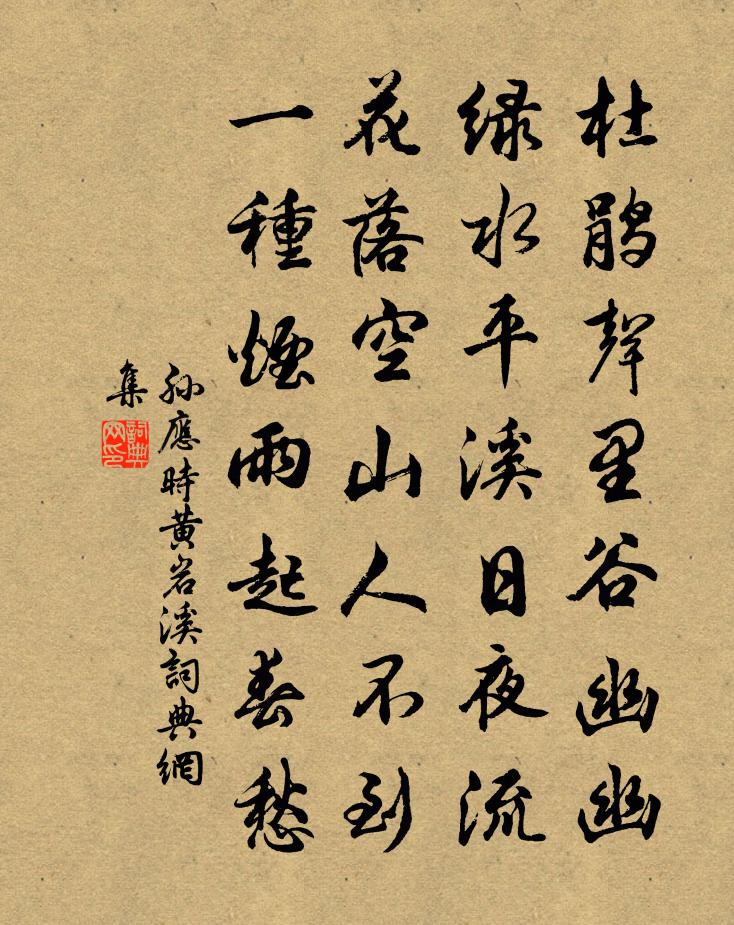 杜鹃聲里谷幽幽
绿水平溪日夜流
花落空山人不到
一種煙雨起春愁
孙應時黄岩溪詞典網
集
詞典
网印